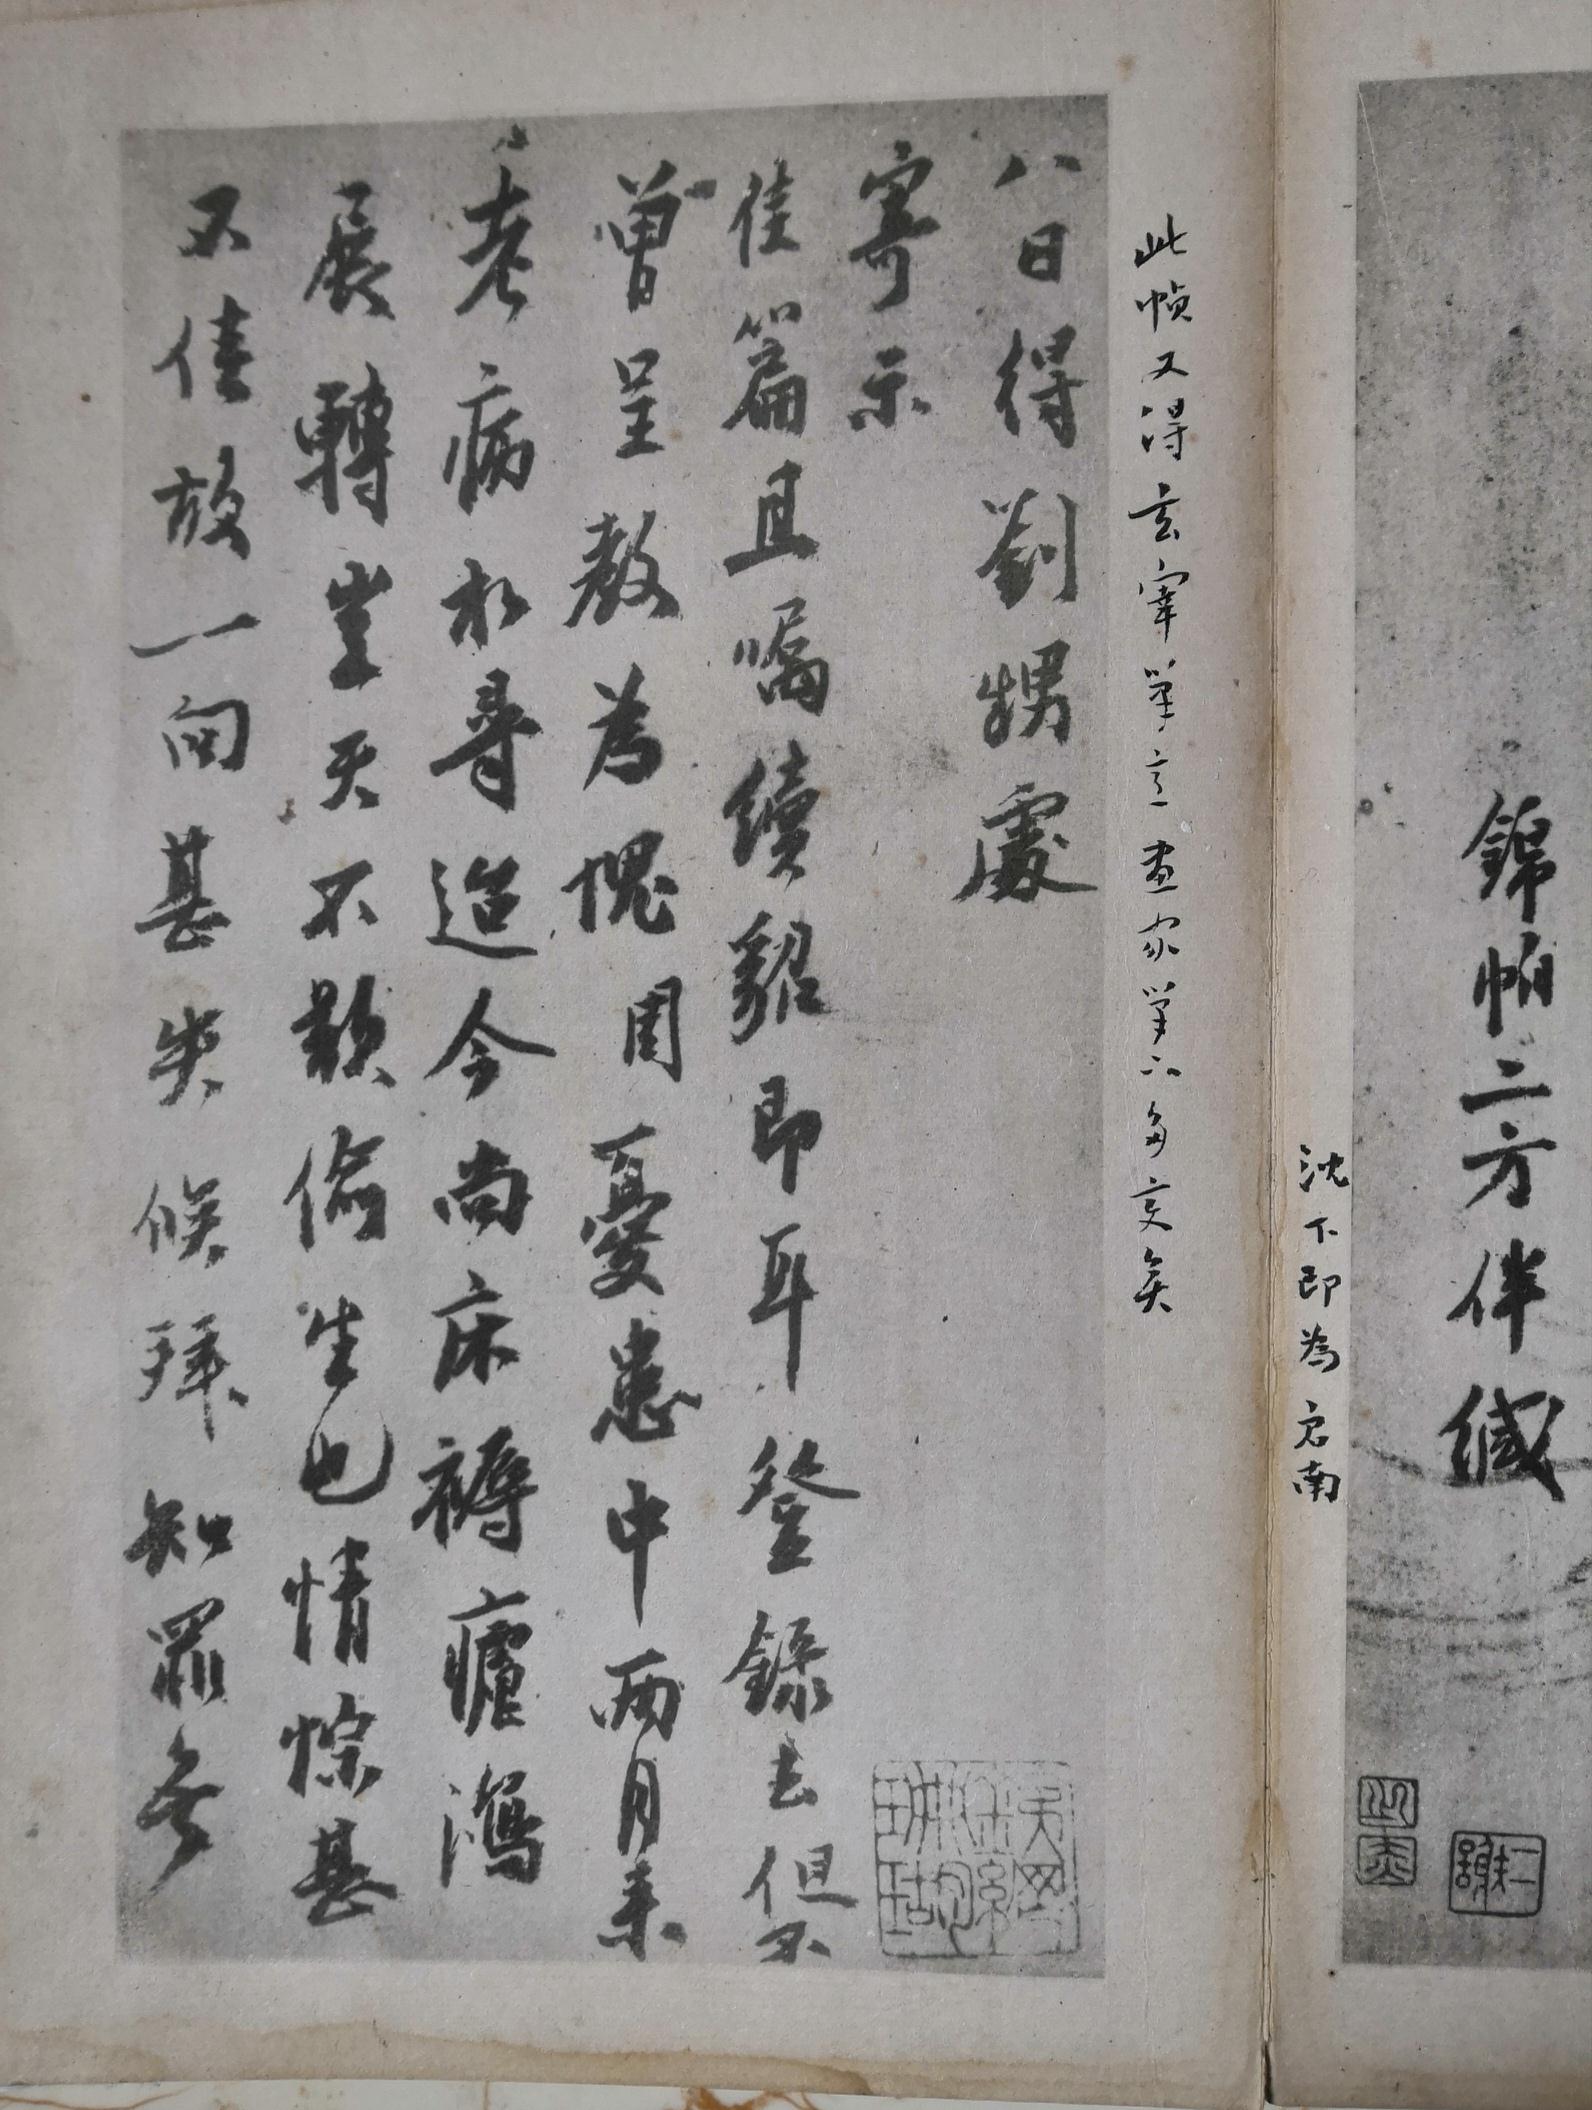 錦帕二方伴緘
沈下即為启南
此幀又得玄宰筆意畫家筆下多交矣
八日得劉甥處
寄示
佳篇且囑續貂即耳登錄去但不
曾呈教為愧周憂患中兩月來
老病相尋迨今尚床褥瘧瀉
展轉豈天不欲偷生也情悰甚
不佳放一向甚失候拜知罪無